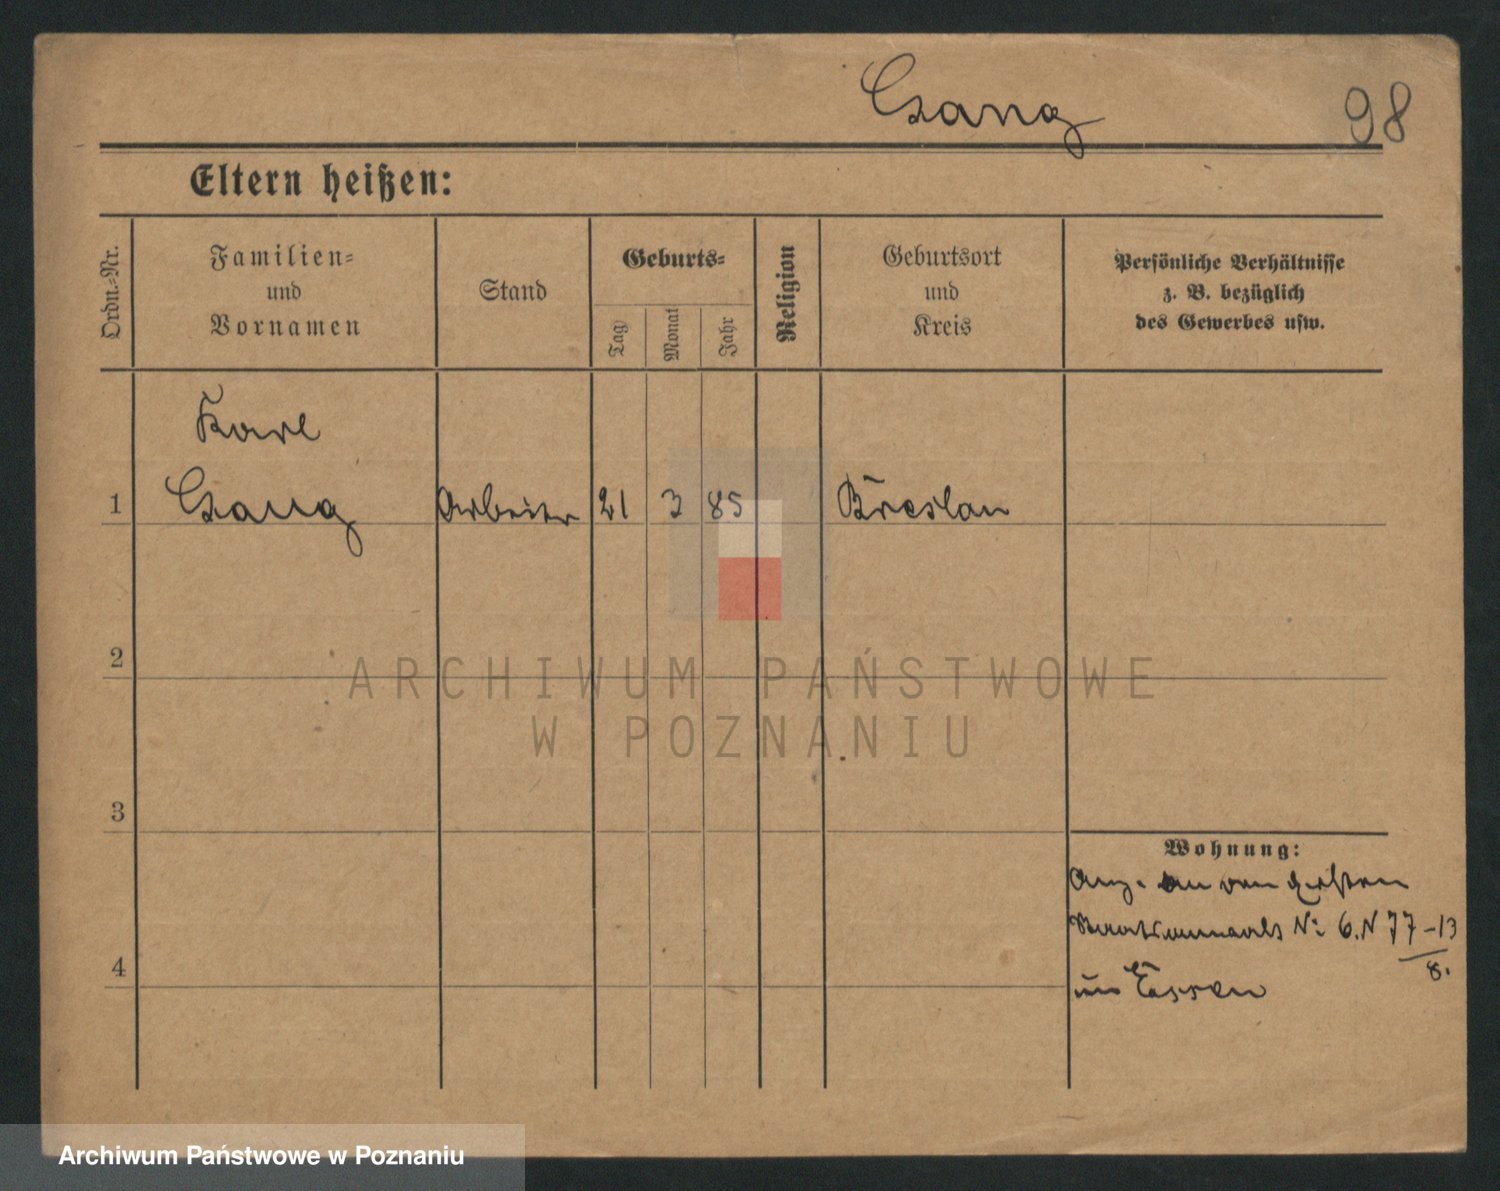 Czang
98
Eltern heißen:
Ordn.-Nr.
Familien-
und
Vornamen
Stand
Geburts-
Tag
Monat
Jahr
Religion
Geburtsort
und
Kreis
Persönliche Verhältnisse
z. B. bezüglich
des Gewerbes usw.
Karl
1 Czang Arbeiter 21 3 85 Breslau
2
ARCHIWUM PAŃSTWOWE
W POZNANIU
3
Wohnung:
Anz. an den Ersten
Staatsanwalt No 6. N 77-13
8.
4
in Essen
Archiwum Państwowe w Poznaniu